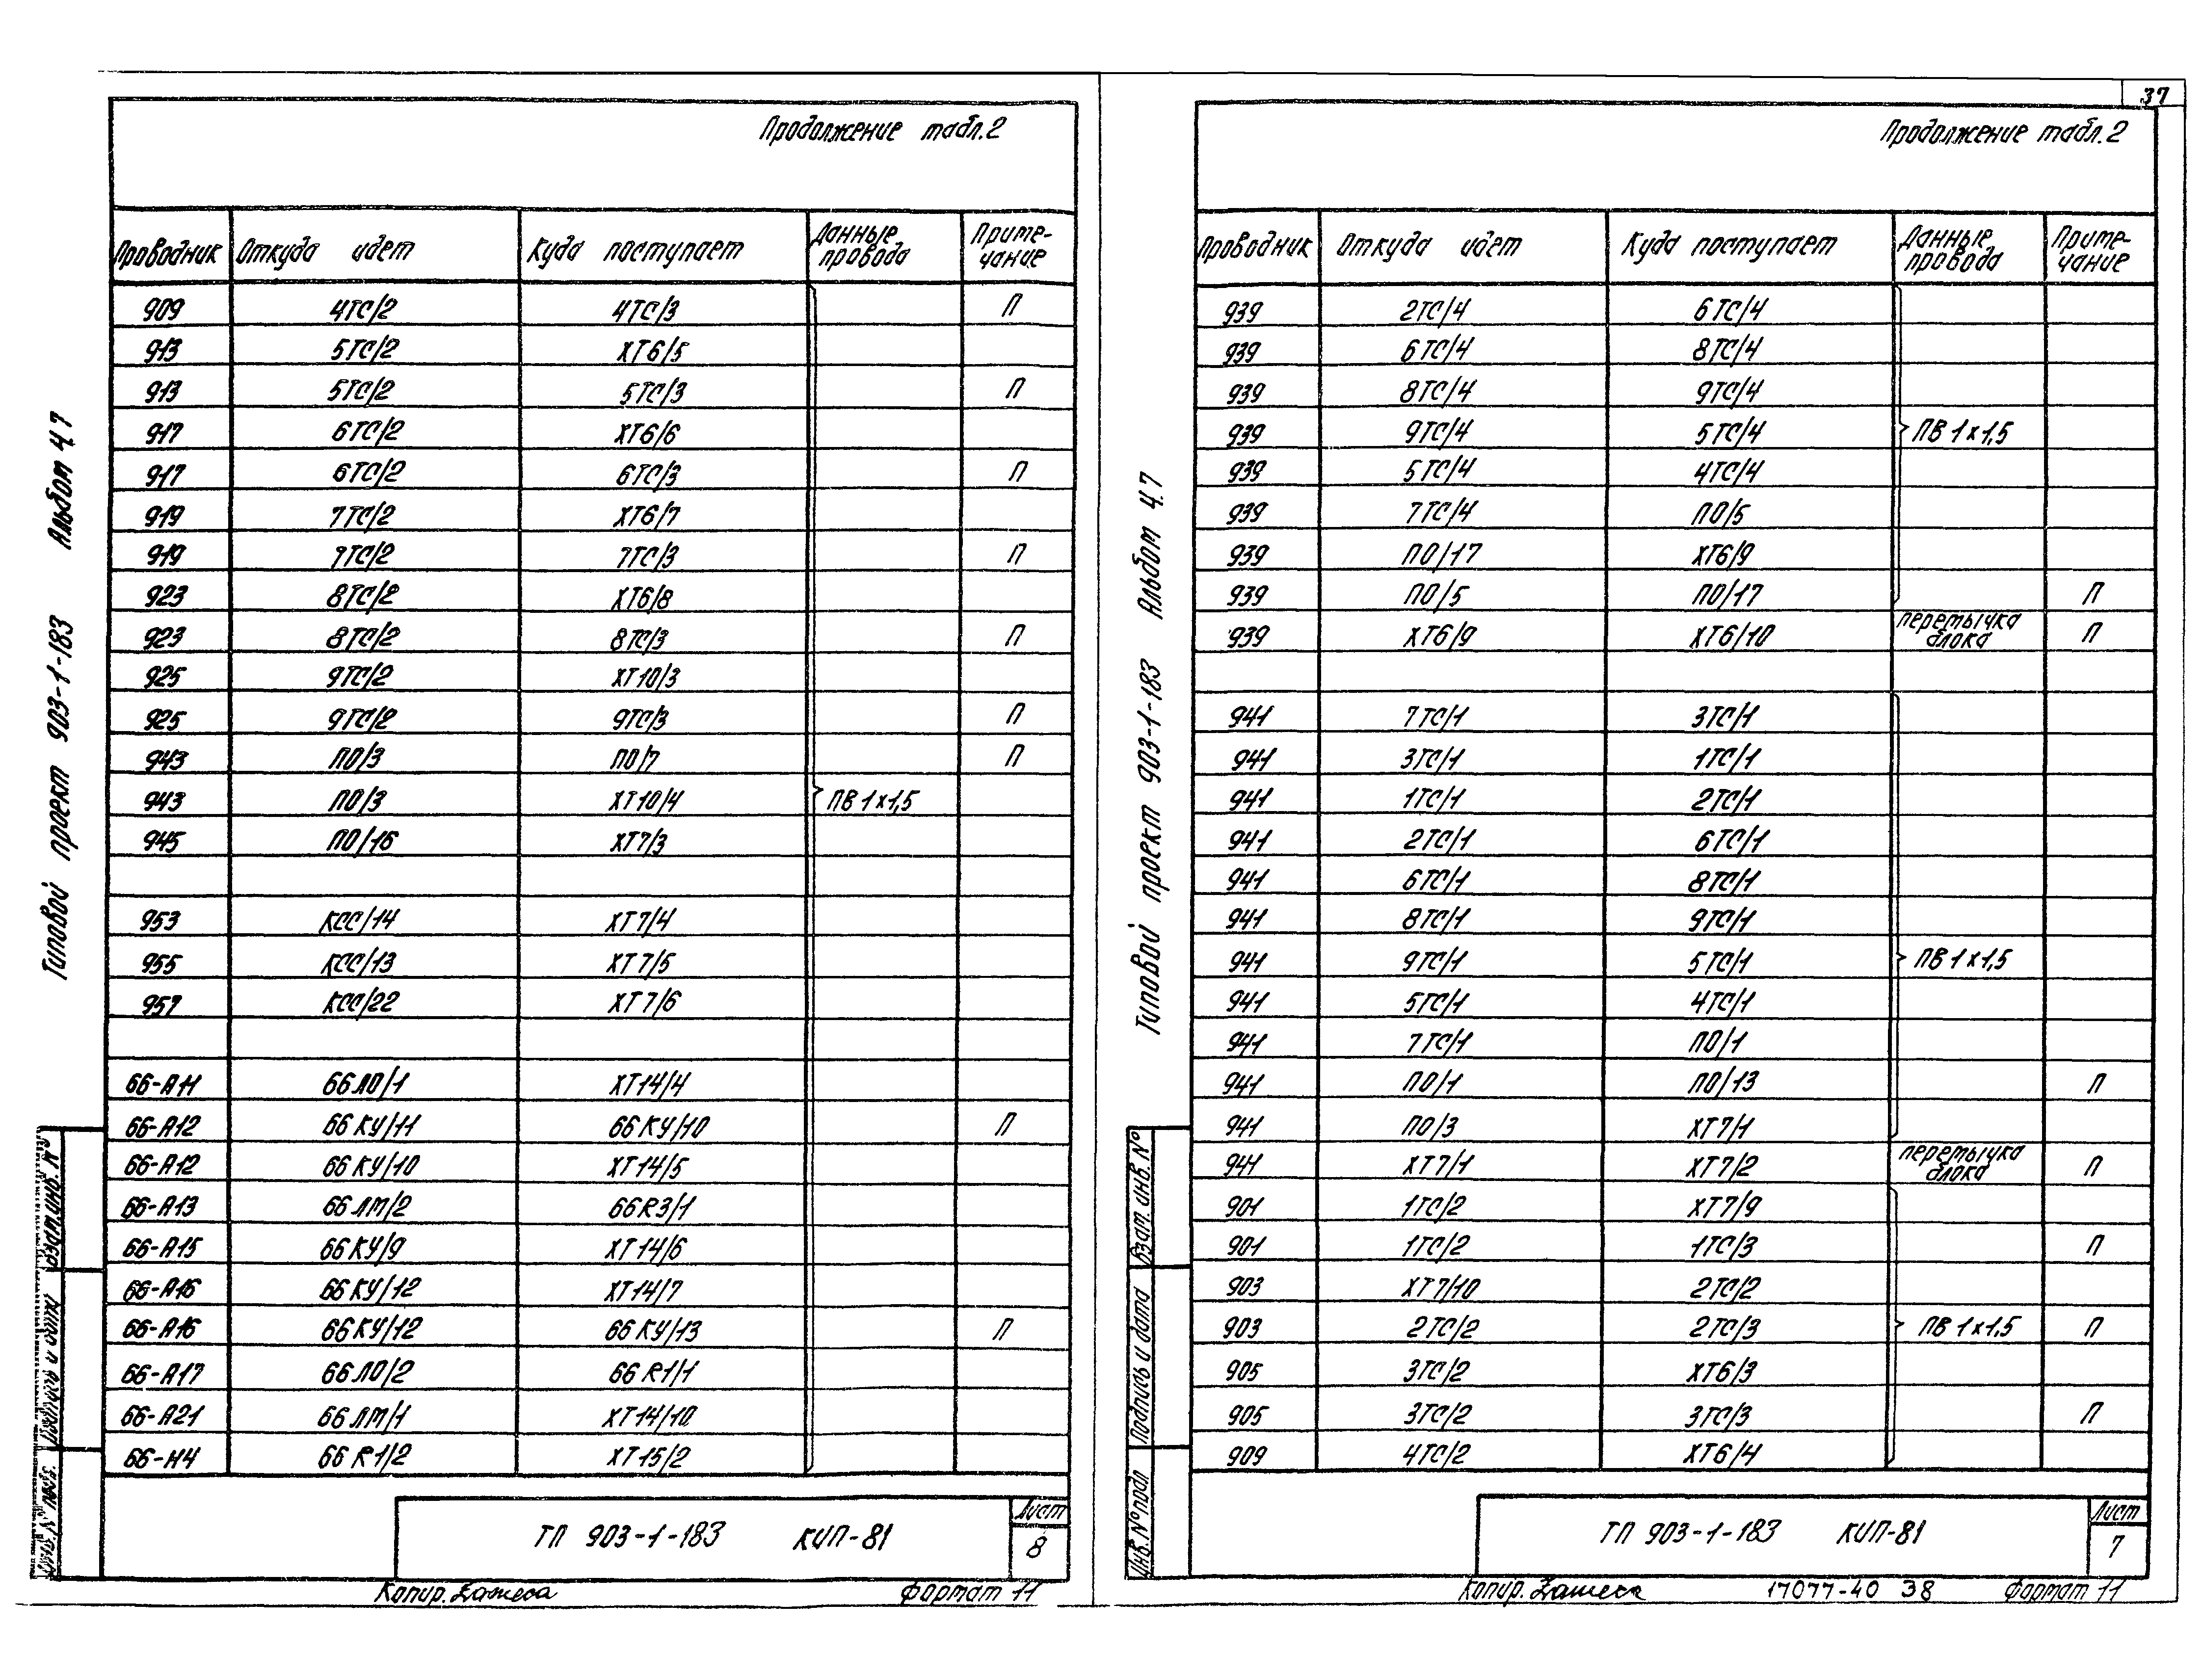 Продолжение табл.2
Проводник Откуда идет Куда поступает Данные провода Примечание
909 4ТС/2 4ТС/3 П
913 5ТС/2 ХТ6/5
913 5ТС/2 5ТС/3 П
917 6ТС/2 ХТ6/6
917 6ТС/2 6ТС/3 П
919 7ТС/2 ХТ6/7
919 7ТС/2 7ТС/3 П
923 8ТС/2 ХТ6/8
923 8ТС/2 8ТС/3 П
925 9ТС/2 ХТ10/3
925 9ТС/2 9ТС/3 П
943 ПО/3 ПО/7 П
943 ПО/3 ХТ10/4 ПВ 1х1,5
945 ПО/16 ХТ7/3
953 КСС/14 ХТ7/4
955 КСС/13 ХТ7/5
957 КСС/22 ХТ7/6
66-А11 66ЛО/1 ХТ14/4
66-А12 66КУ/11 66КУ/10 П
66-А12 66КУ/10 ХТ14/5
66-А13 66ЛМ/2 66R3/1
66-А15 66КУ/9 ХТ14/6
66-А16 66КУ/12 ХТ14/7
66-А16 66КУ/12 66КУ/13 П
66-А17 66ЛО/2 66R1/1
66-А21 66ЛМ/1 ХТ14/10
66-Н4 66R1/2 ХТ15/2
ТП 903-1-183 КИП-81
Лист
8
Копир.
Формат 11
Типовой проект 903-1-183 Альбом 4.7
Взам.инв.№
Подпись и дата
37
Продолжение табл.2
Проводник Откуда идет Куда поступает Данные провода Примечание
939 2ТС/4 6ТС/4
939 6ТС/4 8ТС/4
939 8ТС/4 9ТС/4
939 9ТС/4 5ТС/4 ПВ 1х1,5
939 5ТС/4 4ТС/4
939 7ТС/4 ПО/5
939 ПО/17 ХТ6/9
939 ПО/5 ПО/17 П
939 ХТ6/9 ХТ6/10 перемычка блока П
941 7ТС/1 3ТС/1
941 3ТС/1 1ТС/1
941 1ТС/1 2ТС/1
941 2ТС/1 6ТС/1
941 6ТС/1 8ТС/1
941 8ТС/1 9ТС/1
941 9ТС/1 5ТС/1 ПВ 1х1,5
941 5ТС/1 4ТС/1
941 7ТС/1 ПО/1
941 ПО/1 ПО/13 П
941 ПО/3 ХТ7/1
941 ХТ7/1 ХТ7/2 перемычка блока П
901 1ТС/2 ХТ7/9
901 1ТС/2 1ТС/3 П
903 ХТ7/10 2ТС/2
903 2ТС/2 2ТС/3 ПВ 1х1,5 П
905 3ТС/2 ХТ6/3
905 3ТС/2 3ТС/3 П
909 4ТС/2 ХТ6/4
ТП 903-1-183 КИП-81
Лист
7
Копир.
17077-40 38
Формат 11
Типовой проект 903-1-183 Альбом 4.7
Взам. инв. №
Подпись и дата
Инв.№ подл